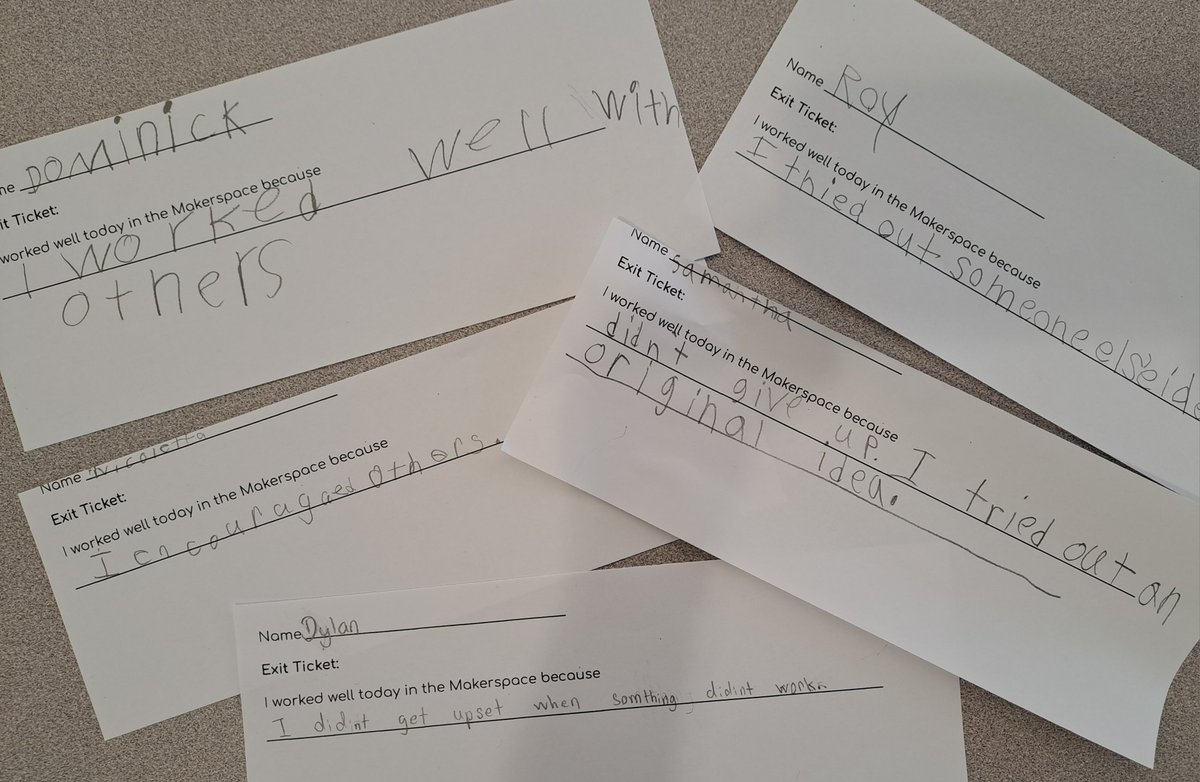 ne DOMINICK
it Ticket:
worked well today in the Makerspace because
I worked well with
others
Name Roy
Exit Ticket:
I worked well today in the Makerspace because
I thied out someone else's ide
Name samantha
Exit Ticket:
I worked well today in the Makerspace because
didnt give up. I tried out an
original idea.
Name Nicoletta
Exit Ticket:
I worked well today in the Makerspace because
I encouragaed others.
Name Dylan
Exit Ticket:
I worked well today in the Makerspace because
I didint get upset when somthing didint work